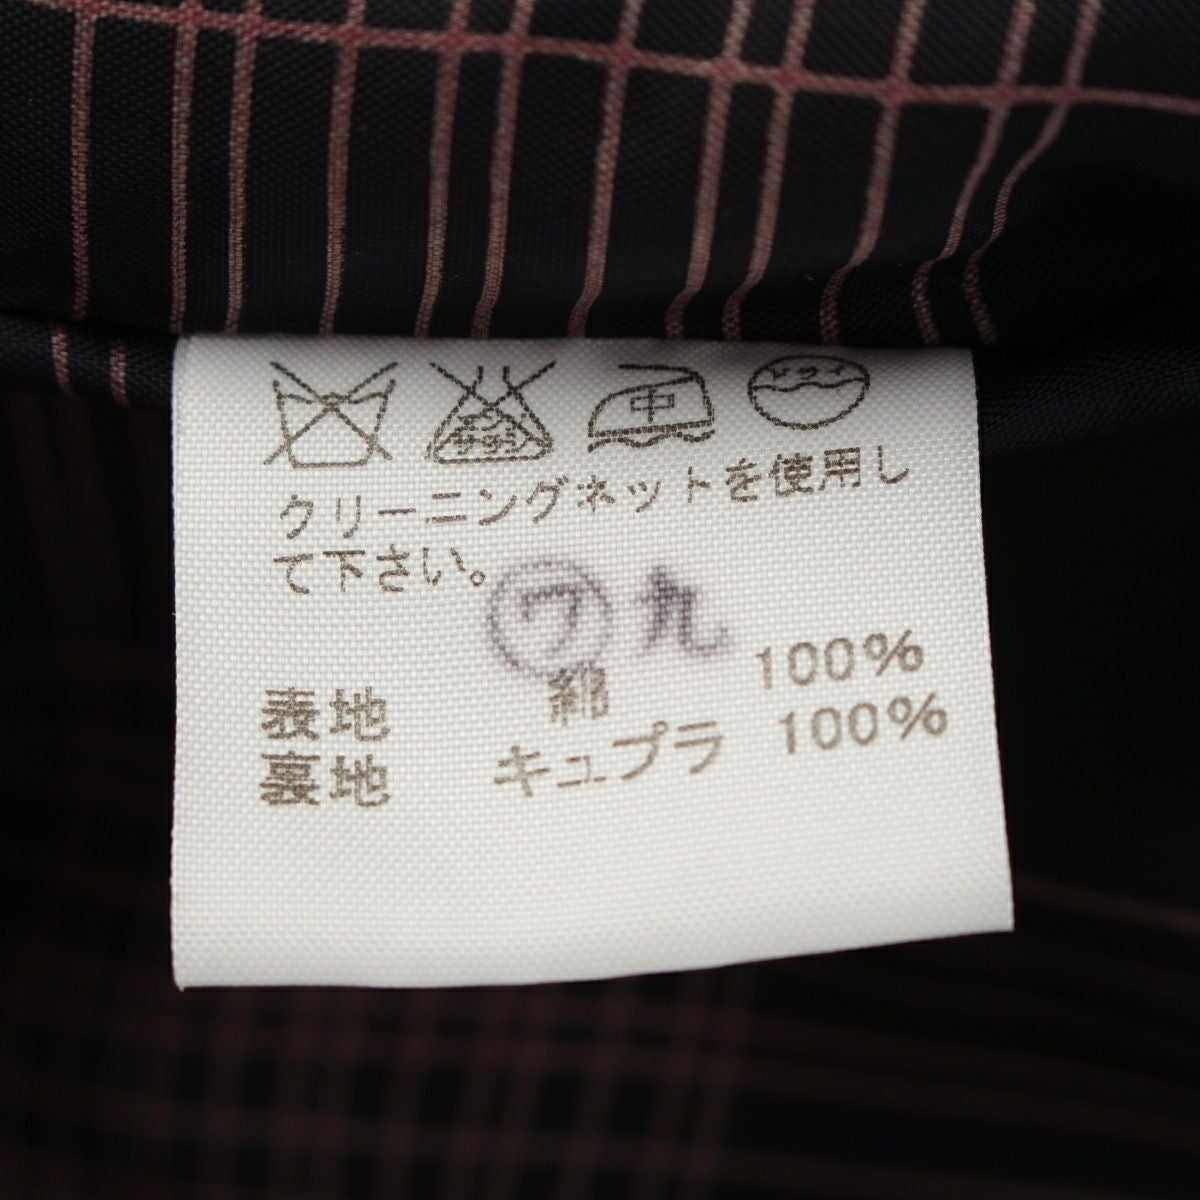 エンソ サラシ 中 ドライ
クリーニングネットを使用し
て下さい。
ワ 丸
表地 綿 100%
裏地 キュプラ 100%